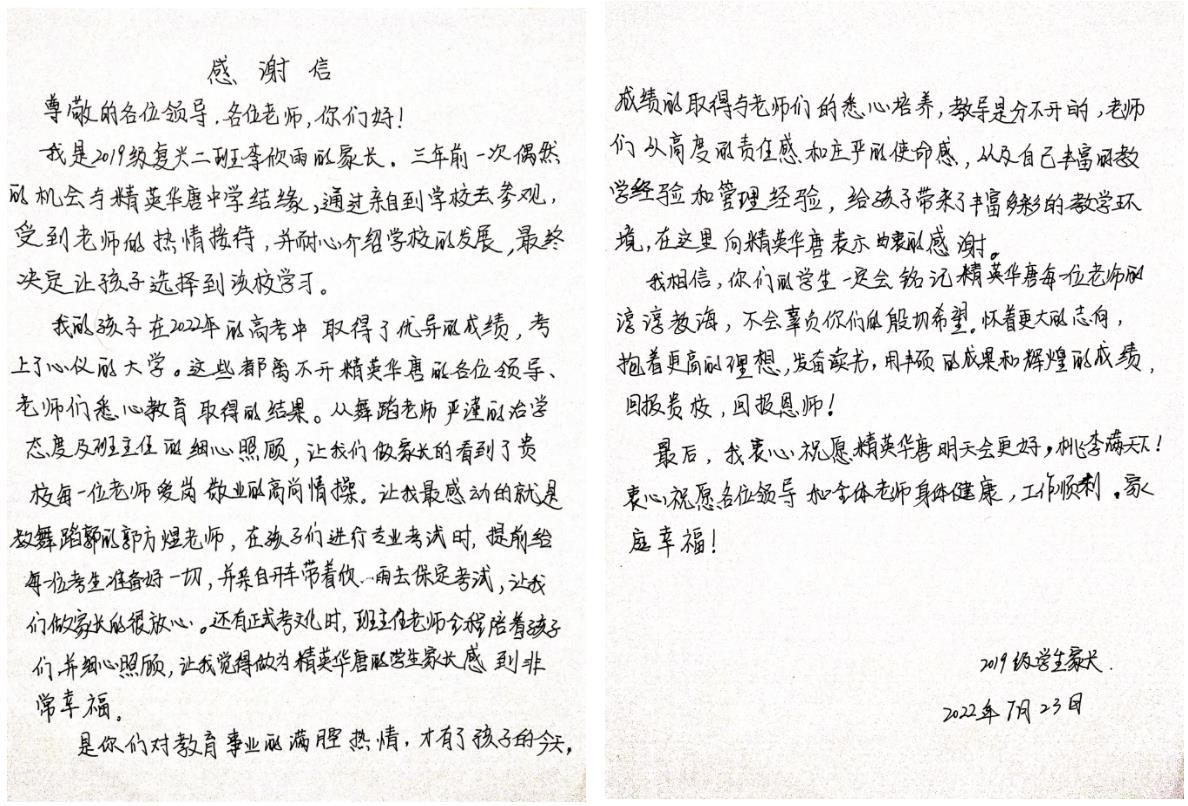 感谢信
尊敬的各位领导,各位老师,你们好!
我是2019级复兴二班李欣雨的家长。三年前一次偶然
的机会与精英华唐中学结缘,通过亲自到学校去参观,
受到老师的热情接待,并耐心介绍学校的发展,最终
决定让孩子选择到该校学习。
我的孩子在2022年的高考中取得了优异的成绩,考
上了心仪的大学。这些都离不开精英华唐的各位领导、
老师们悉心教育取得的结果。从舞蹈老师严谨的治学
态度及班主任的细心照顾,让我们做家长的看到了贵
校每一位老师爱岗敬业的高尚情操。让我最感动的就是
教舞蹈的郭方煜老师,在孩子们进行专业考试时,提前给
每一位考生准备好一切,并亲自开车带着欣雨去保定考试,让我
们做家长的很放心。还有正式考文化时,班主任老师全程陪着孩子
们,并细心照顾,让我觉得做为精英华唐的学生家长感到非
常幸福。
是你们对教育事业的满腔热情,才有了孩子的今天,
成绩的取得与老师们的悉心培养,教导是分不开的,老师
们从高度的责任感和庄严的使命感,以及自己丰富的教
学经验和管理经验,给孩子带来了丰富多彩的教学环
境,在这里向精英华唐表示由衷的感谢。
我相信,你们的学生一定会铭记精英华唐每一位老师的
谆谆教诲,不会辜负你们的殷切希望。怀着更大的志向,
抱着更高的理想,发奋读书,用丰硕的成果和辉煌的成绩,
回报贵校,回报恩师!
最后,我衷心祝愿精英华唐明天会更好,桃李满天下!
衷心祝愿各位领导和全体老师身体健康,工作顺利。家
庭幸福!
2019级学生家长.
2022年7月23日